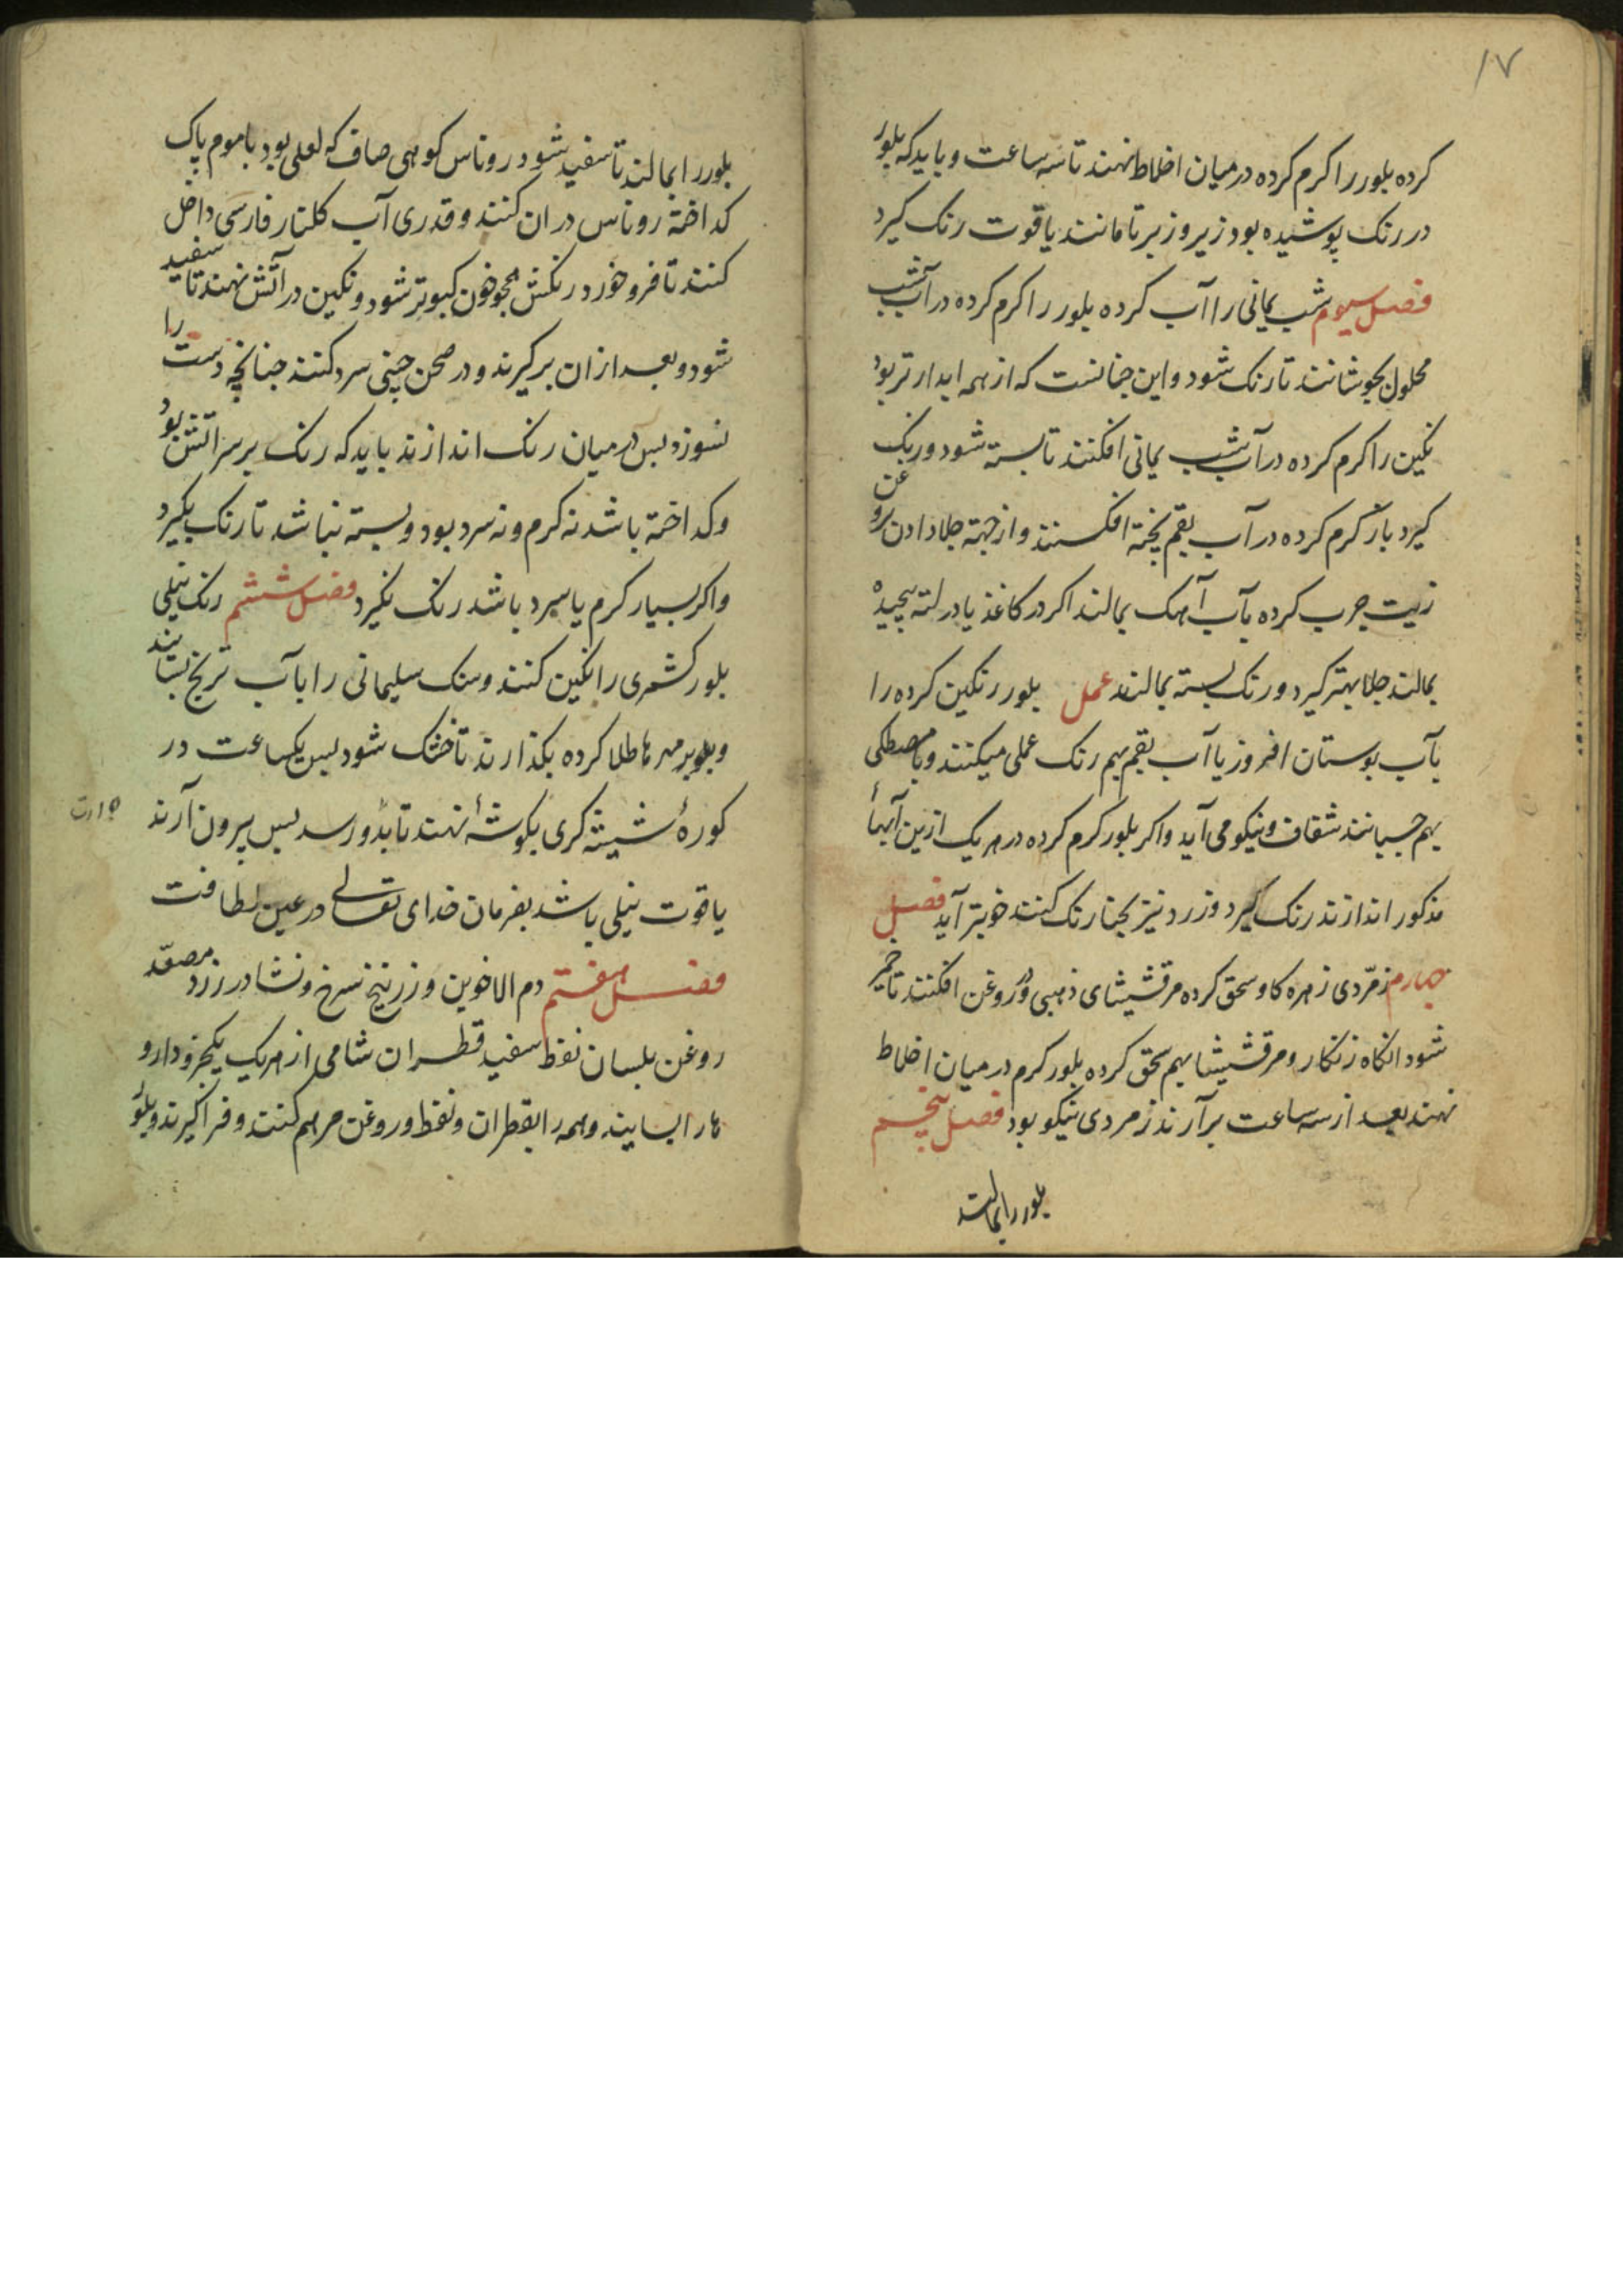 ۱۷
کرده بلور را کرم کرده در میان اخلاط نهند تا سه ساعت و باید که بلور
در رنک پوشیده بود زیر و زبر تا مانند یاقوت رنک کیرد
فصل سیوم شب یمانی را آب کرده بلور را کرم کرده در آب شب
محلول بجوشانند تا رنک شود و این چنانست که از همه ابدارتر بود
نکین را کرم کرده در آب شب یمانی افکنند تا بسته شود و رنک
کیرد باز کرم کرده در آب بقم پخته افکنند و از جهة جلا دادن روغن
زیت چرب کرده بآب آهک بمالند اکر در کاغذ یا در لته پیچیده
بمالند جلا بهتر کیرد و رنک بسته بمالند عمل بلور رنکین کرده را
بآب بوستان افروز یا آب بقم بهم رنک عملی میکنند و بمصطکی
بهم چسبانند شفاف و نیکو می آید و اکر بلور کرم کرده در هر یک ازین آبهاء
مذکور اندازند رنک کیرد و زرد نیز بحنا رنک کنند خوبتر آید فصل
چهارم زمردی زهره کاو سحق کرده مرقشیشای ذهبی در روغن افکنند تا خمیر
شود انکاه زنکار و مرقشیشا بهم سحق کرده بلور کرم در میان اخلاط
نهند بعد از سه ساعت برآرند زمردی نیکو بود فصل پنجم
بلور را بمالند
بلور را بمالند تا سفید شود روناس کوهی صاف که لعلی بود با موم پاک
کداخته روناس در ان کنند و قدری آب کلنار فارسی داخل
کنند تا فرو خورد رنکش همچو خون کبوتر شود و نکین در آتش نهند تا سفید
شود و بعد از ان برکیرند و در صحن چینی سرد کنند چنانچه دست را
نسوزد پس در میان رنک اندازند باید که رنک بر سر اتش بود
و کداخته باشد نه کرم و نه سرد بود و بسته نباشد تا رنک بکیرد
و اکر بسیار کرم یا سرد باشد رنک نکیرد فصل ششم رنک نیلی
بلور کشمری را نکین کنند و سنک سلیمانی را بآب ترنج بسایند
و بلور مهرها طلا کرده بکذارند تا خشک شود پس یکساعت در
کورهٔ شیشه کری بکوشهٔ نهند تا بدو رسد پس بیرون آرند
یاقوت نیلی باشد بفرمان خدای تعالی در عین لطافت
فصل هفتم دم الاخوین و زرنیخ سرخ و نشادر زرد مصعد
روغن بلسان نفط سفید قطران شامی از هر یک یکجزو دارو
ها را بسایند و همه را بقطران و نفط و روغن مرهم کنند و فراکیرند و بلور